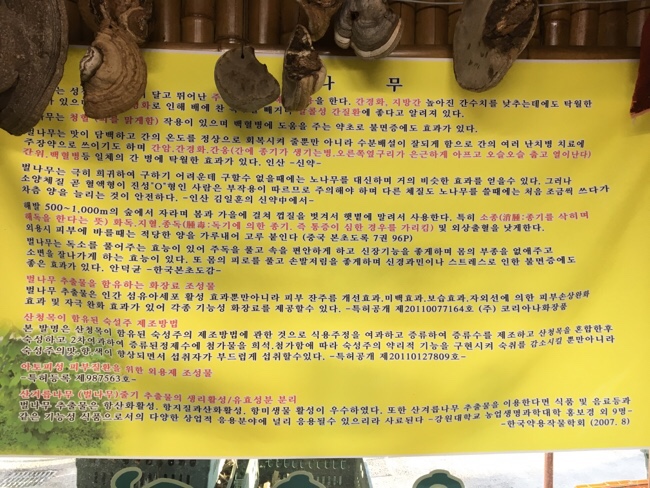 나 무
달고 뛰어난
을 한다. 간경화, 지방간 높아진 간수치를 낮추는데에도 탁월한
로 인해 배에 간질환에 좋다고 알려져 있다.
작용이 있으며 백혈병에도 도움을 주는 약초로 불면증에도 효과가 있다.
벌나무는 맛이 담백하고 간의 온도를 정상으로 회복시켜 줄뿐만 아니라 수분배설이 잘되게 함으로 간의 여러 난치병 치료에
주장약으로 쓰이기도 하며 간암,간경화,간옹(간에 종기가 생기는병,오른쪽옆구리가 은근하게 아프고 오슬오슬 춥고 열이난다)
간위,백혈병등 일체의 간 병에 탁월한 효과가 있다. 인산 -신약-
벌나무는 극히 희귀하여 구하기 어려운데 구할수 없을때에는 노나무를 대신하며 거의 비슷한 효과를 얻을수 있다. 그러나
소양체질 곧 혈액형이 진성"O"형인 사람은 부작용이 따르므로 주의해야 하며 다른 체질도 노나무를 쓸때에는 처음 조금씩 쓰다가
차츰 양을 늘리는 것이 안전하다. -인산 김일훈의 신약중에서-
해발 500~1,000m의 숲에서 자라며 봄과 가을에 걸쳐 껍질을 벗겨서 햇볕에 말려서 사용한다. 특히 소종(消腫:종기를 삭히며
해독을 한다는 뜻) 화독,지혈,종독(腫毒:독기에 의한 종기. 즉 통증이 심한 경우를 가리킴) 및 외상출혈을 낫게한다.
외용시 피부에 마를때는 적당한 양을 가루내어 고루 붙인다 (중국 본초도록 7권 96P)
벌나무는 독소를 풀어주는 효능이 있어 주독을 풀고 속을 편안하게 하고 신장기능을 좋게하며 몸의 부종을 없애주고
소변을 잘나가게 하는 효능이 있다. 또 몸의 피로를 풀고 손발저림을 좋게하며 신경과민이나 스트레스로 인한 불면증에도
좋은 효과가 있다. 안덕균 -한국본초도감-
벌나무 추출물을 함유하는 화장료 조성물
벌나무 추출물은 인간 섬유아세포 활성 효과뿐만아니라 피부 잔주름 개선효과,미백효과,보습효과,자외선에 의한 피부손상완화
효과 및 자극 완화 효과가 있어 각종 기능성 화장료를 제공할수 있다. -특허공개 제20110077164호 (주) 코리아나화장품
산청목이 함유된 숙성주 제조방법
본 발명은 산청목이 함유된 숙성주의 제조방법에 관한 것으로 식용주정을 여과하고 증류하여 증류수를 제조하고 산청목을 혼합한후
숙성하고 2차여과하여 증류된정제수에 첨가물을 희석,첨가함에 따라 숙성주의 약리적 기능을 구현시켜 숙취를 감소시킬 뿐만아니라
숙성주의맛,향,색이 향상되면서 섭취자가 부드럽게 섭취할수있다. -특허공개 제20110127809호-
아토피성 피부질환을 위한 외용제 조성물
-특허등록 제987563호-
산겨릅나무 (벌나무)줄기 추출물의 생리활성/유효성분 분리
벌나무 추출물은 항산화활성, 항지질과산화활성, 항미생물 활성이 우수하였다. 또한 산겨릅나무 추출물을 이용한다면 식품 및 음료등과
같은 기능성 식품으로서의 다양한 상업적 응용분야에 널리 응용될수 있으리라 사료된다 -강원대학교 농업생명과학대학 홍보경 외 9명-
-한국약용작물학회 (2007. 8)